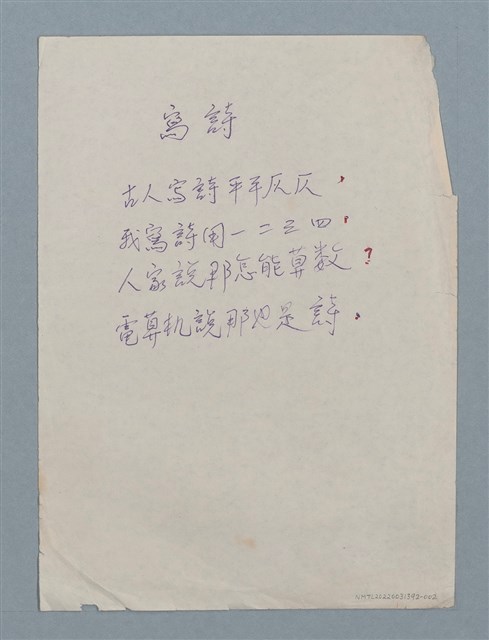 寫詩
古人寫詩平平仄仄，
我寫詩用一二三四，
人家說那怎能算数？
電算机說那也是詩，
NMTL20220031392-002